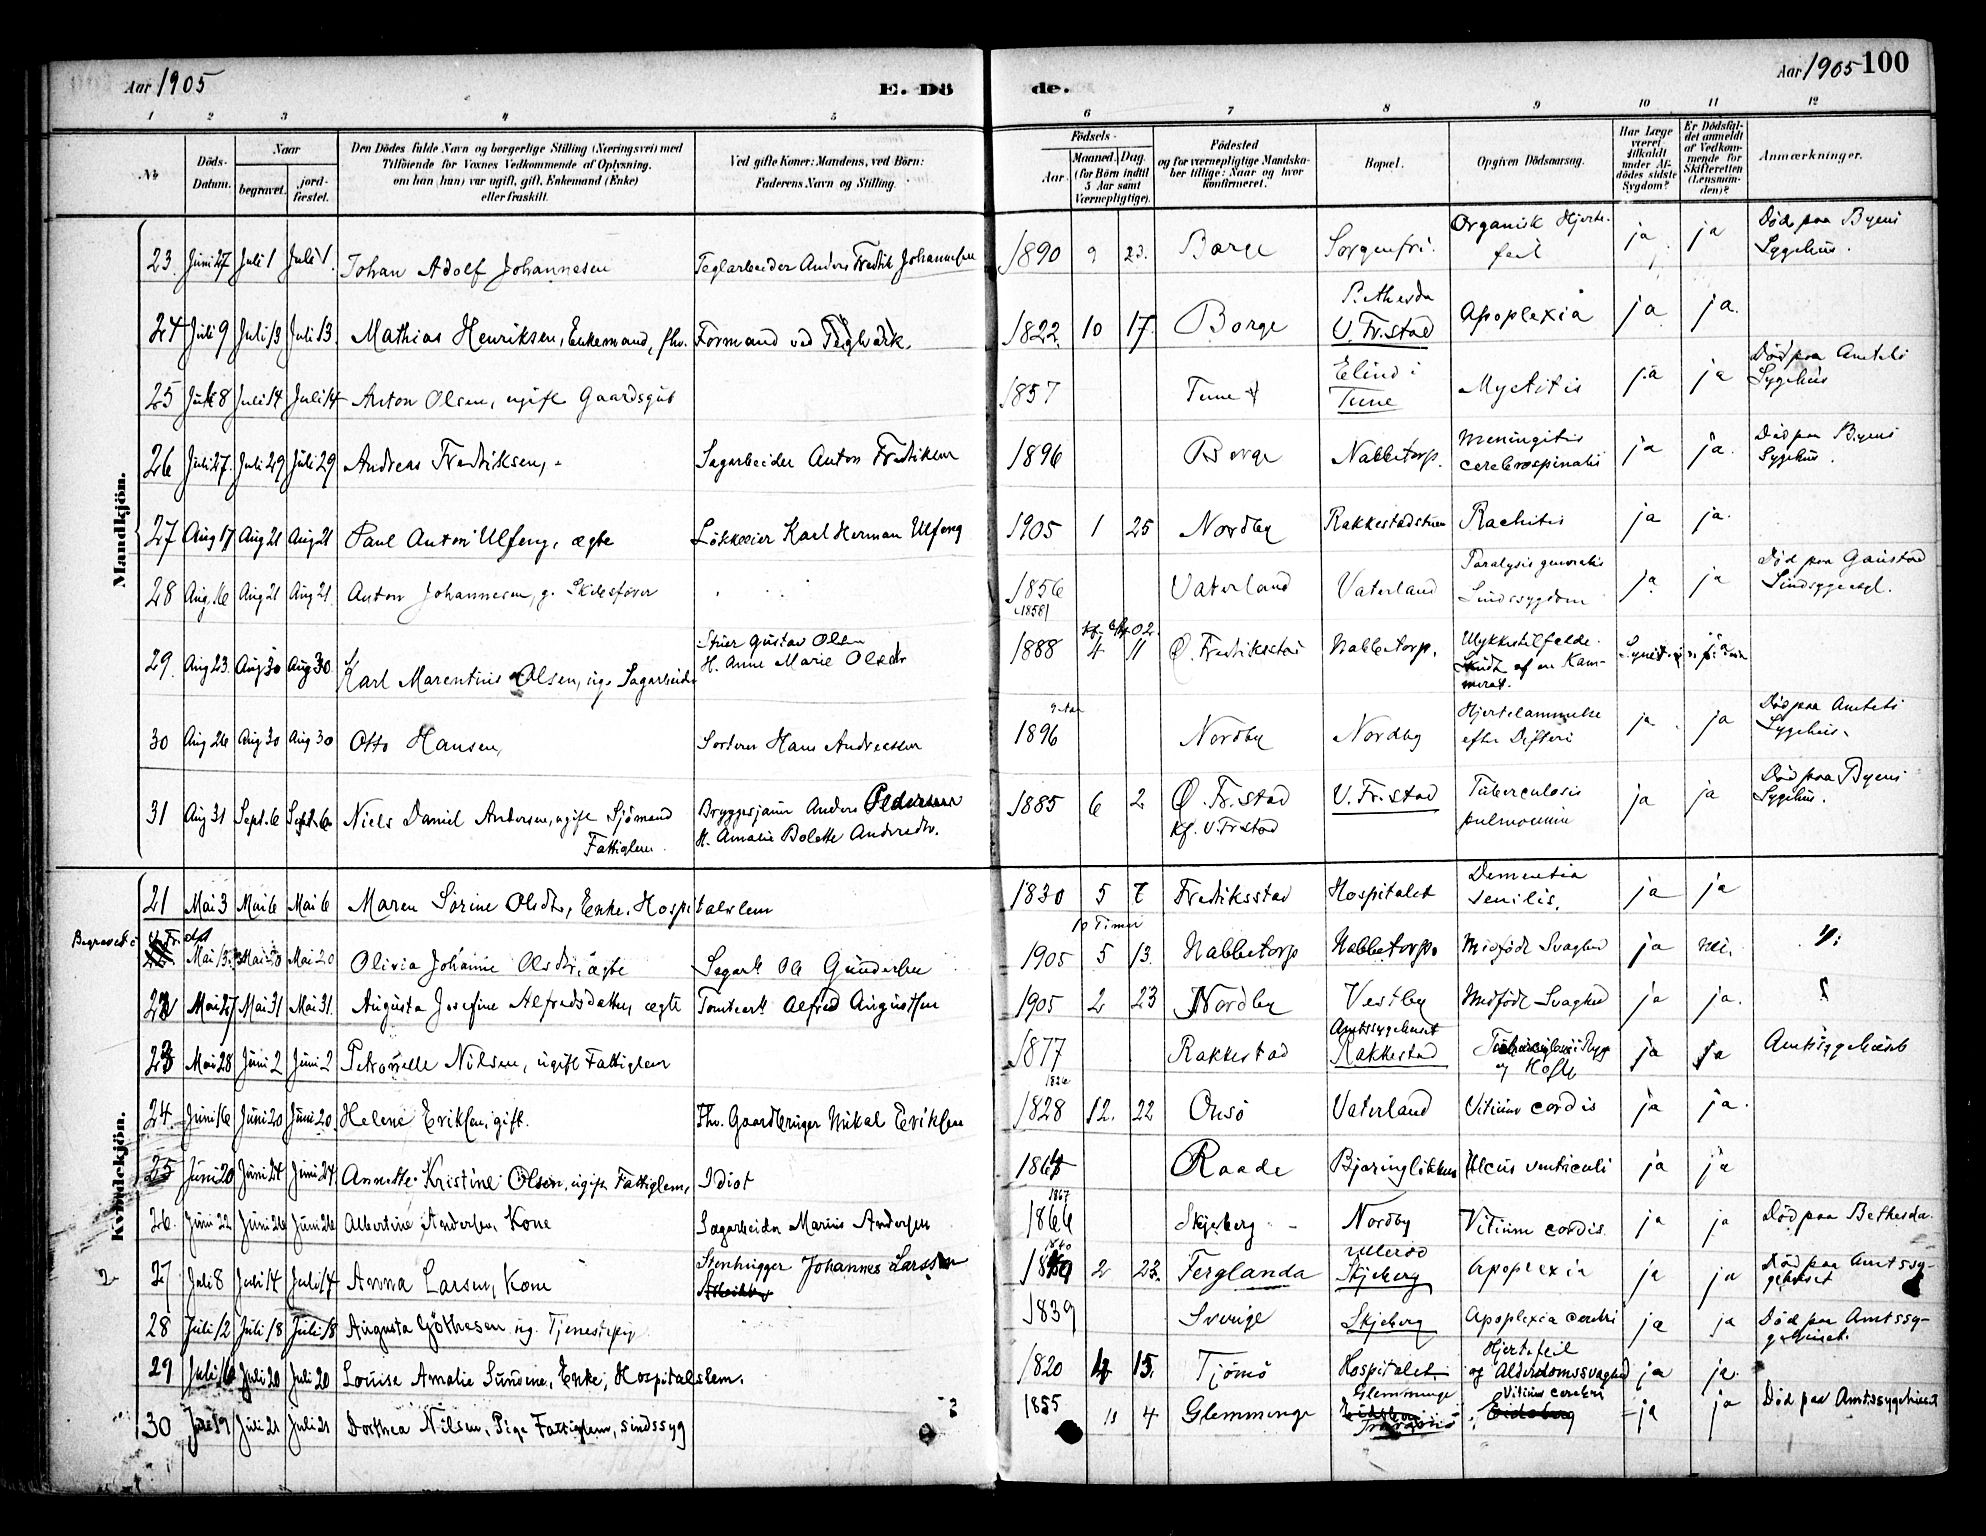 Aar 1905
E. Dö
de.
Aar 1905 100
1 2 3 4 5 6 7 8 9 10 11 12
No
Döds-
Datum.
Naar
begravet.
jord-
fæstet.
Den Dödes fulde Navn og borgerlige Stilling (Næringsvei) med
Tilföiende for Voxnes Vedkommende af Oplysning,
om han (hun) var ugift, gift, Enkemand (Enke)
eller fraskilt.
Ved gifte Koner: Mandens, ved Börn:
Faderens Navn og Stilling.
Födsels-
Aar.
Maaned. Dag.
(for Börn indtil
5 Aar samt
Værnepligtige).
Födested
og for værnepligtige Mandska-
ber tillige: Naar og hvor
konfirmeret.
Bopæl.
Opgiven Dödsaarsag.
Har Læge
været
tilkaldt
under Af-
dödes sidste
Sygdom?
Er Dödsfal-
det anmeldt
af Vedkom-
mende for
Skifteretten
(Lensman-
den)?
Anmærkninger.
Mandkjön.
23. Juni 27 Juli 1 Juli 1. Johan Adolf Johannesen Teglarbeider Anders Fredrik Johannesen 1890 9 23. Borge Sorgenfri. Organisk Hjerte-
feil ja ja Död paa Byens
Sygehus.
24 Juli 9 Juli 13 Juli 13. Mathias Henriksen, Enkemand, fhv. Formand ved Teglværk. 1822. 10 17. Borge Bethesda
V. Fr.stad Apoplexia ja ja.
25 Juli 8 Juli 14 Juli 14 Anton Olsen, ugift Gaardsgut 1857 Tune Elind i
Tune Myelitis ja ja Död paa Amtets
Sygehus
26 Juli 27. Juli 29 Juli 29 Andreas Fredriksen, Sagarbeider Anton Fredriksen 1896 Borge Nabbetorp. Meningitis
cerebrospinalis ja ja. Död paa Byens
Sygehus.
27 Aug 17 Aug 21 Aug 21 Paul Anton Ulfeng, ægte Lökkeeier Karl Herman Ulfeng 1905 1 25 Nordby Rakkestadstuen Rachitis ja ja.
28 Aug. 16 Aug 21 Aug 21. Anton Johannesen, g. Skibsförer 1856
(1858) Vaterland Vaterland Paralysis generalis
Sindssygdom ja ja Död paa Gaustad
Sindsygeasyl.
29. Aug 23. Aug 30 Aug 30 Karl Marentius Olsen, ug. Sagarbeider Stuer Gustav Olsen
H. Anne Marie Olsdtr 1888 4 11 Ö. Fredriksstad Nabbetorp. Ulykkestilfælde.
Skudt af en Kam-
merat.
30 Aug 26 Aug 30 Aug 30 Otto Hansen, Sorterer Hans Andreassen 1896 Nordby Nordby Hjertelammelse
efter Difteri ja ja Död paa Amtets
Sygehus.
31 Aug 31 Sept. 6 Sept. 6 Niels Daniel Andersen, ugift Sjömand
Fattiglem. Bryggesjauer Anders Pedersen
H. Amalie Bolette Andersdtr. 1885 6 2 Ö. Fr.stad
Kf. V. Fr stad V. Fr. stad Tuberculosis
pulmonum ja ja Död paa Byens
Sygehus.
Kvindekjön.
21 Mai 3 Mai 6 Mai 6 Maren Sörine Olsdtr, Enke, Hospitalslem 1830 5 7 Fredriksstad Hospitalet Dementia
senilis. ja ja
Begravet i V. Fr.stad
Mai 13. Mai 20 Mai 20 Olivia Johanne Olsdtr, ægte Sagarb. Ole Gundersen 10 Timer
1905 5 13. Nabbetorp Nabbetorp. Medfödt Svaghed ja nei.
22 Mai 27 Mai 31 Mai 31. Augusta Josefine Alfredsdatter, ægte Tomtearb. Alfred Augustsen 1905 2 23 Nordby Vestby Medfödt Svaghed ja ja.
23 Mai 28 Juni 2 Juni 2 Petronelle Nilsen, ugift Fattiglem 1877 Rakkestad Amtssygehuset
Rakkestad Tuberculose i Ryg
og Hofte ja ja Amtssygehuset
24. Juni 16 Juni 20 Juni 20. Helene Eriksen, gift. Fhv. Gaardbruger Mikal Eriksen 1826
1828 12. 22 Onsö Vaterland Vitium cordis ja ja.
25 Juni 20 Juni 24 Juni 24. Annette Kristine Olsen, ugift Fattiglem, Idiot 1864 Raade Björinglökken Ulcus ventriculi ja ja
26. Juni 22 Juni 26 Juni 26 Albertine Andersen, Kone Sagarbeider Marius Andersen 1867
1866 Skjeberg Nordby Vitium cordis ja ja Död paa Bethesda.
27 Juli 8 Juli 14 Juli 14 Anna Larsen, Kone Stenhugger Johannes Larssen 2 23. Ferglanda Ulleröd
Skjeberg Apoplexia ja ja Död paa Amtssy-
gehuset
28 Juli 12 Juli 18 Juli 18 Augusta Göthesen ug. Tjenestepig 1839 Sverige Skjeberg Apoplexia cerebri ja ja Död paa Amtssy-
gehuset.
29 Juli 16 Juli 20 Juli 20 Louise Amalie Sundene, Enke, Hospitalslem. 1820 4 15. Tjömö Hospitalet Hjertefeil
og Alderdomssvaghed ja ja
30 Juli 19 Juli 21 Juli 21 Dorthea Nilsen, Pige Fattiglem, sindssyg 1855 11 4 Glemminge Glemminge Vitium cerebri ja ja Död paa Amtssygehuset